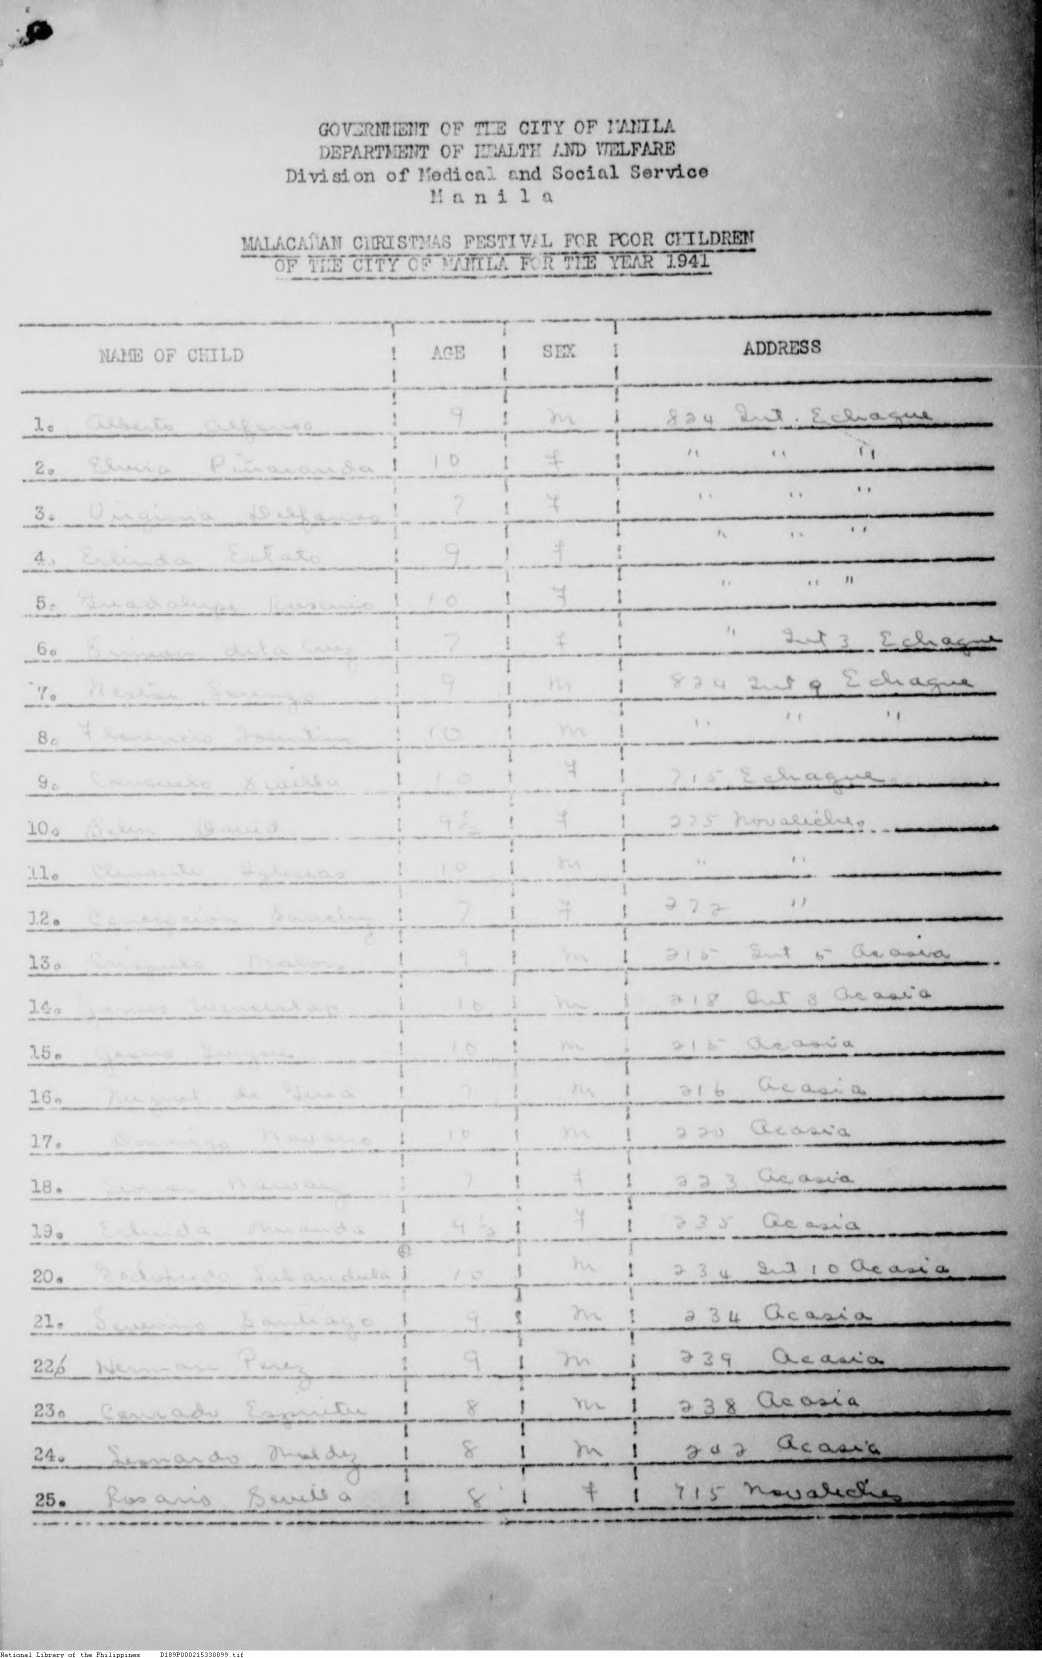 GOVERNMENT OF THE CITY OF MANILA
DEPARTMENT OF HEALTH AND WELFARE
Division of Medical and Social Service
M a n i l a
MALACAÑAN CHRISTMAS FESTIVAL FOR POOR CHILDREN
OF THE CITY OF MANILA FOR THE YEAR 1941
NAME OF CHILD AGE SEX ADDRESS
1. Alberto Alfonso 9 M 824 Int. Echague
2. Elvira Piñaranda 10 F " " "
3. Virginia 7 F " " "
4. Erlinda Estato 9 F " " "
5. Guadalupe 10 F " " "
6. dela Cruz 7 F " Int 3 Echague
7. 9 M 824 Int 9 Echague
8. Florencio 10 M " " "
9. Consuelo 10 F 715 Echague
10. Belen David 9½ F 225 Novaliches
11. Clemente Iglesias 10 M " "
12. Concepcion Sanchez 7 F 272 "
13. 9 M 215 Int 5 Acasia
14. 10 M 218 Int 3 Acasia
15. 10 M 215 Acasia
16. Miguel de 7 M 216 Acasia
17. Domingo Navarro 10 M 220 Acasia
18. 7 F 223 Acasia
19. Miranda 9½ F 235 Acasia
20. 10 M 234 Int 10 Acasia
21. Severino Santiago 9 M 234 Acasia
22. Herman Perez 9 M 239 Acasia
23. Conrado Espiritu 8 M 238 Acasia
24. Leonardo 8 M 202 Acasia
25. Rosario Sevilla 8 F 715 Novaliches
National Library of the Philippines D189P000215330899.tif